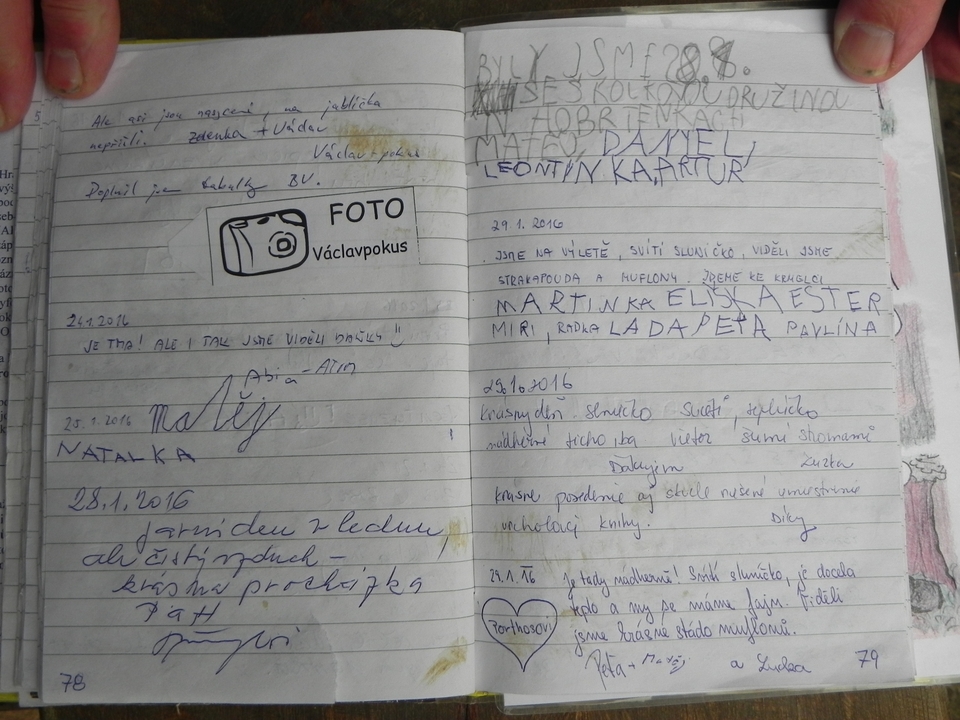 Ale asi jsou nasycení, na jablíčka
nepřišli. Zdenka + Václav
Václav pokus
Doplnil jsem tabulky BV.
FOTO
Václavpokus
24.1.2016
JE TMA! ALE I TAK JSME VIDĚLI
Abia - Atim
25.1.2016 Matěj
NATALKA
28.1.2016
jarní den v lednu,
ale čistý vzduch –
krásná procházka
P a H
78
BYLY JSME 28.1.
SE ŠKOLKOU DRUŽINOU
V HOBRTENKÁCH
MATEJ, DANIEL,
LEONTÝNKA, ARTUR
29.1.2016
JSME NA VÝLETĚ, SVÍTÍ SLUNÍČKO, VIDĚLI JSME
STRAKAPOUDA A MUFLONY. JDEME KE KRMELCI
MARTINKA ELIŠKA ESTER
MIRI, RADKA LADA PETA PAVLÍNA
29.1.2016
krásny deň. slniečko svieti, teplíčko
nádherné ticho, iba vietor šumí stromami
Ďakujem Zuzka
krásne posedenie aj skvele riešené umiestnenie
vrcholovej knihy. Díky
29.1.16 Je tady nádherně! Svítí sluníčko, je docela
teplo a my se máme fajn. Viděli
Porthosovi
jsme krásné stádo muflonů.
Peťa + Matěj a Lucka
79